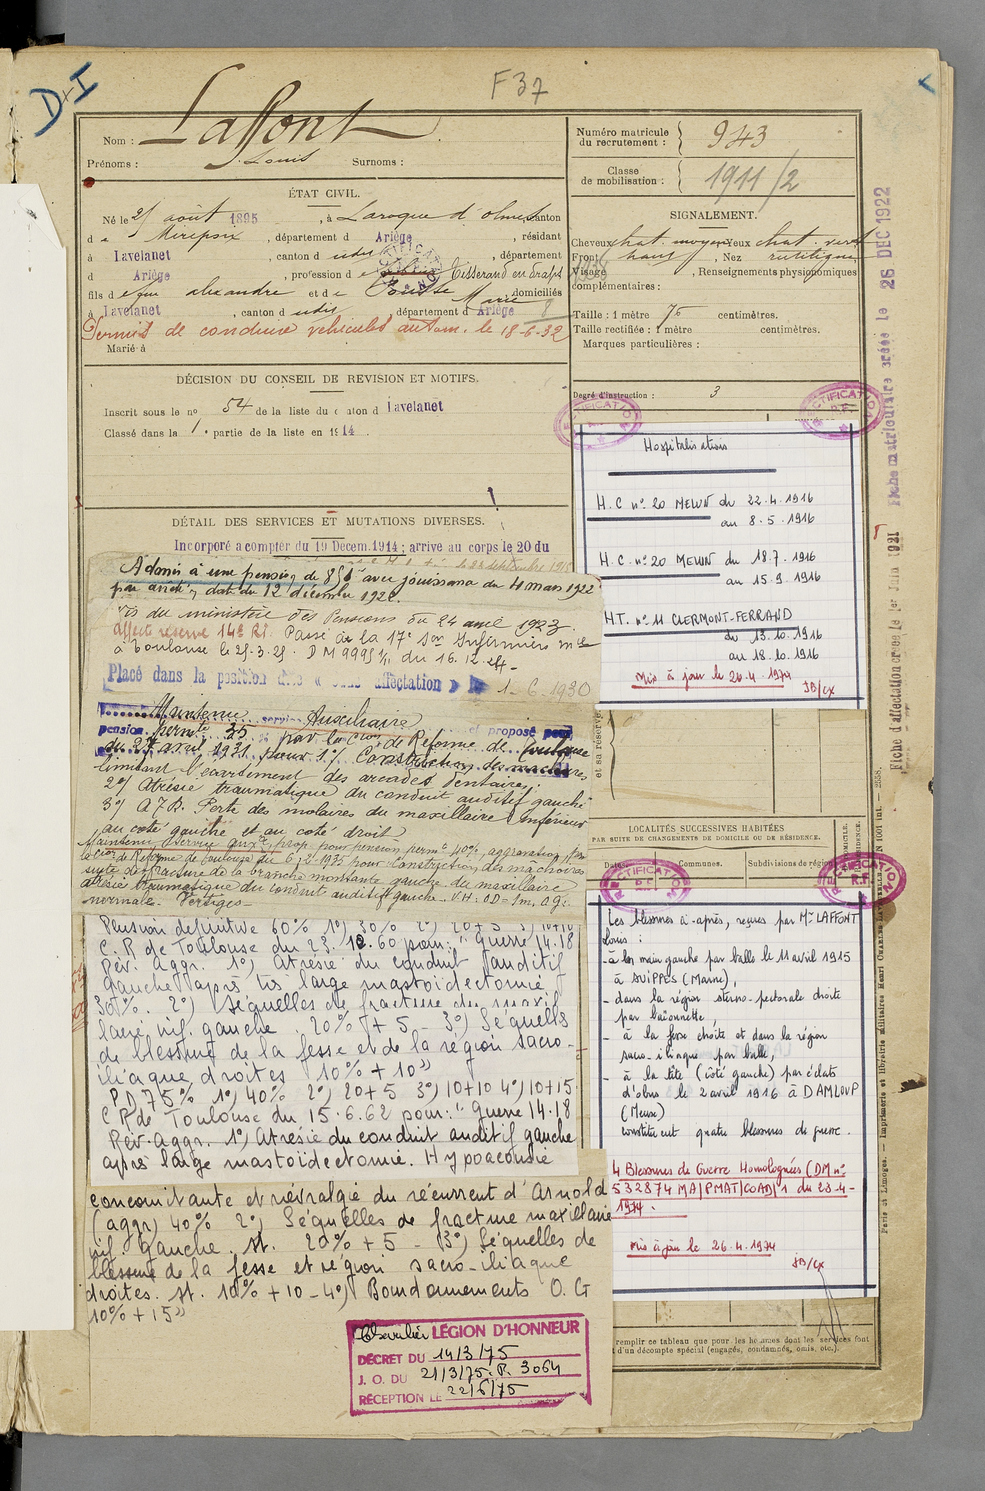 D+I
F 37
Nom : Laffont
Prénoms : Louis Surnoms :
Numéro matricule du recrutement : 943
Classe de mobilisation : 1911/2
ÉTAT CIVIL.
Né le 25 août 1895, à Laroque d'olmes canton
de Mirepoix, département d Ariège, résidant
à Lavelanet, canton d udit, département
d Ariège, profession d Tisserand en draps
fils d e feu alexandre et de Marie, domiciliés
à Lavelanet, canton d udit, département d Ariège 8
Permis de conduire vehicules autom. le 18-6-32
Marié à
SIGNALEMENT.
Cheveux chat. moyen Yeux chat. vert
Front haut, Nez rectiligne
Visage, Renseignements physionomiques
complémentaires :
Taille : 1 mètre 75 centimètres.
Taille rectifiée : 1 mètre centimètres.
Marques particulières :
Degré d'instruction : 3
DÉCISION DU CONSEIL DE REVISION ET MOTIFS.
Inscrit sous le no 54 de la liste du canton d Lavelanet
Classé dans la 1e partie de la liste en 1914.
RECTIFICATION
R.F.
RECTIFICATION
R.F.
Hospitalisations
H.C. n° 20 MELUN du 22.4.1916
au 8.5.1916
H.C. n° 20 MELUN du 18.7.1916
au 15.9.1916
H.T. n° 11 CLERMONT-FERRAND
du 13.10.1916
au 18.10.1916
Mis à jour le 26.4.1974
JB/cx
DÉTAIL DES SERVICES ET MUTATIONS DIVERSES.
Incorporé a compter du 19 Decem. 1914 ; arrive au corps le 20 du
Admis à une pension de avec jouissance du 4 mars 1922
par arrêté, date du 12 décembre 1922.
vis du ministère des Pensions du 24 avril 1923
affecté réserve 14e RI. Passé à la 17e Son Infirmiers mres
à Toulouse le 25-3-25. DM 9995 1/11 du 16.12.24-
Placé dans la position dite « sans affectation » le 1-6-1930
Maintenu service Auxiliaire et proposé pour
pension permte 35 % par la Cion de Réforme de Toulouse
du 27 avril 1931 pour 1°/ Constriction des machoires
limitant l'écartement des arcades dentaires;
2°/ Atrésie traumatique du conduit auditif gauche
3°/ A 7 B. Perte des molaires du maxillaire inférieur
au coté gauche et au coté droit
Maintenu service auxre, prop. pour pension permte 40%, aggravation, par
la Cion de Réforme de Toulouse du 6-2-1935 pour Constriction des machoires
suite de fracture de la branche montante gauche du maxillaire
atrésie traumatique du conduit auditif gauche. V.H: OD = 1m, O.g:
normale. Vertiges-
et sa réserve
LOCALITÉS SUCCESSIVES HABITÉES
PAR SUITE DE CHANGEMENTS DE DOMICILE OU DE RÉSIDENCE.
Dates. Communes. Subdivisions de région
RECTIFICATION
R.F.
RECTIFICATION
R.F.
Pension définitive 60% 1°) 30% 2°) 20+5 3°) 10+10
C.R de Toulouse du 23.12.60 pour: "Guerre 14.18
Rév. Aggr. 1°) Atrésie du conduit auditif
gauche après très large mastoïdectomie
30%. 2°) Séquelles de fracture du maxil
laire inf. gauche 20% + 5 - 3°) Séquelles
de blessure de la fesse et de la région sacro-
iliaque droites 10% + 10"
PD 75% 1°) 40% 2°) 20+5 3°) 10+10 4°) 10+15
C R de Toulouse du 15.6.62 pour: "Guerre 14.18
Rév. aggr. 1°) Atrésie du conduit auditif gauche
après large mastoïdectomie. Hypoacousie
concomitante et névralgie du récurrent d'Arnold
(aggr) 40% 2°) Séquelles de fracture maxillaire
inf. gauche. st. 20% + 5 - 3°) Séquelles de
blessure de la fesse et région sacro-iliaque
droites. st. 10% + 10 - 4°) Bourdonnements O.G
10% + 15"
Les blessures ci-après, reçues par Mr LAFFONT
Louis :
- à la main gauche par balle le 11 avril 1915
à SUIPPES (Marne),
- dans la région sterno-pectorale droite
par baïonnette,
- à la fesse droite et dans la région
sacro-iliaque par balle,
- à la tête (côté gauche) par éclats
d'obus le 2 avril 1916 à DAMLOUP
(Meuse)
constituent quatre blessures de guerre.
4 Blessures de Guerre Homologuées (DM n°
532874 MA/PMAT/COAD/1 du 23-4-
1974.
Mis à jour le 26.4.1974
JB/cx
remplir ce tableau que pour les hommes dont les services font
d'un décompte spécial (engagés, condamnés, omis, etc.).
Chevalier LÉGION D'HONNEUR
DÉCRET DU 14/3/75
J. O. DU 21/3/75. P. 3064
RÉCEPTION LE 22/6/75
Fiche matriculaire créée le 26 DEC 1922
Fiche d'affectation créée le 1er Juin 1921
Paris et Limoges. — Imprimerie et librairie militaires Henri CHARLES-LAVAUZELLE.